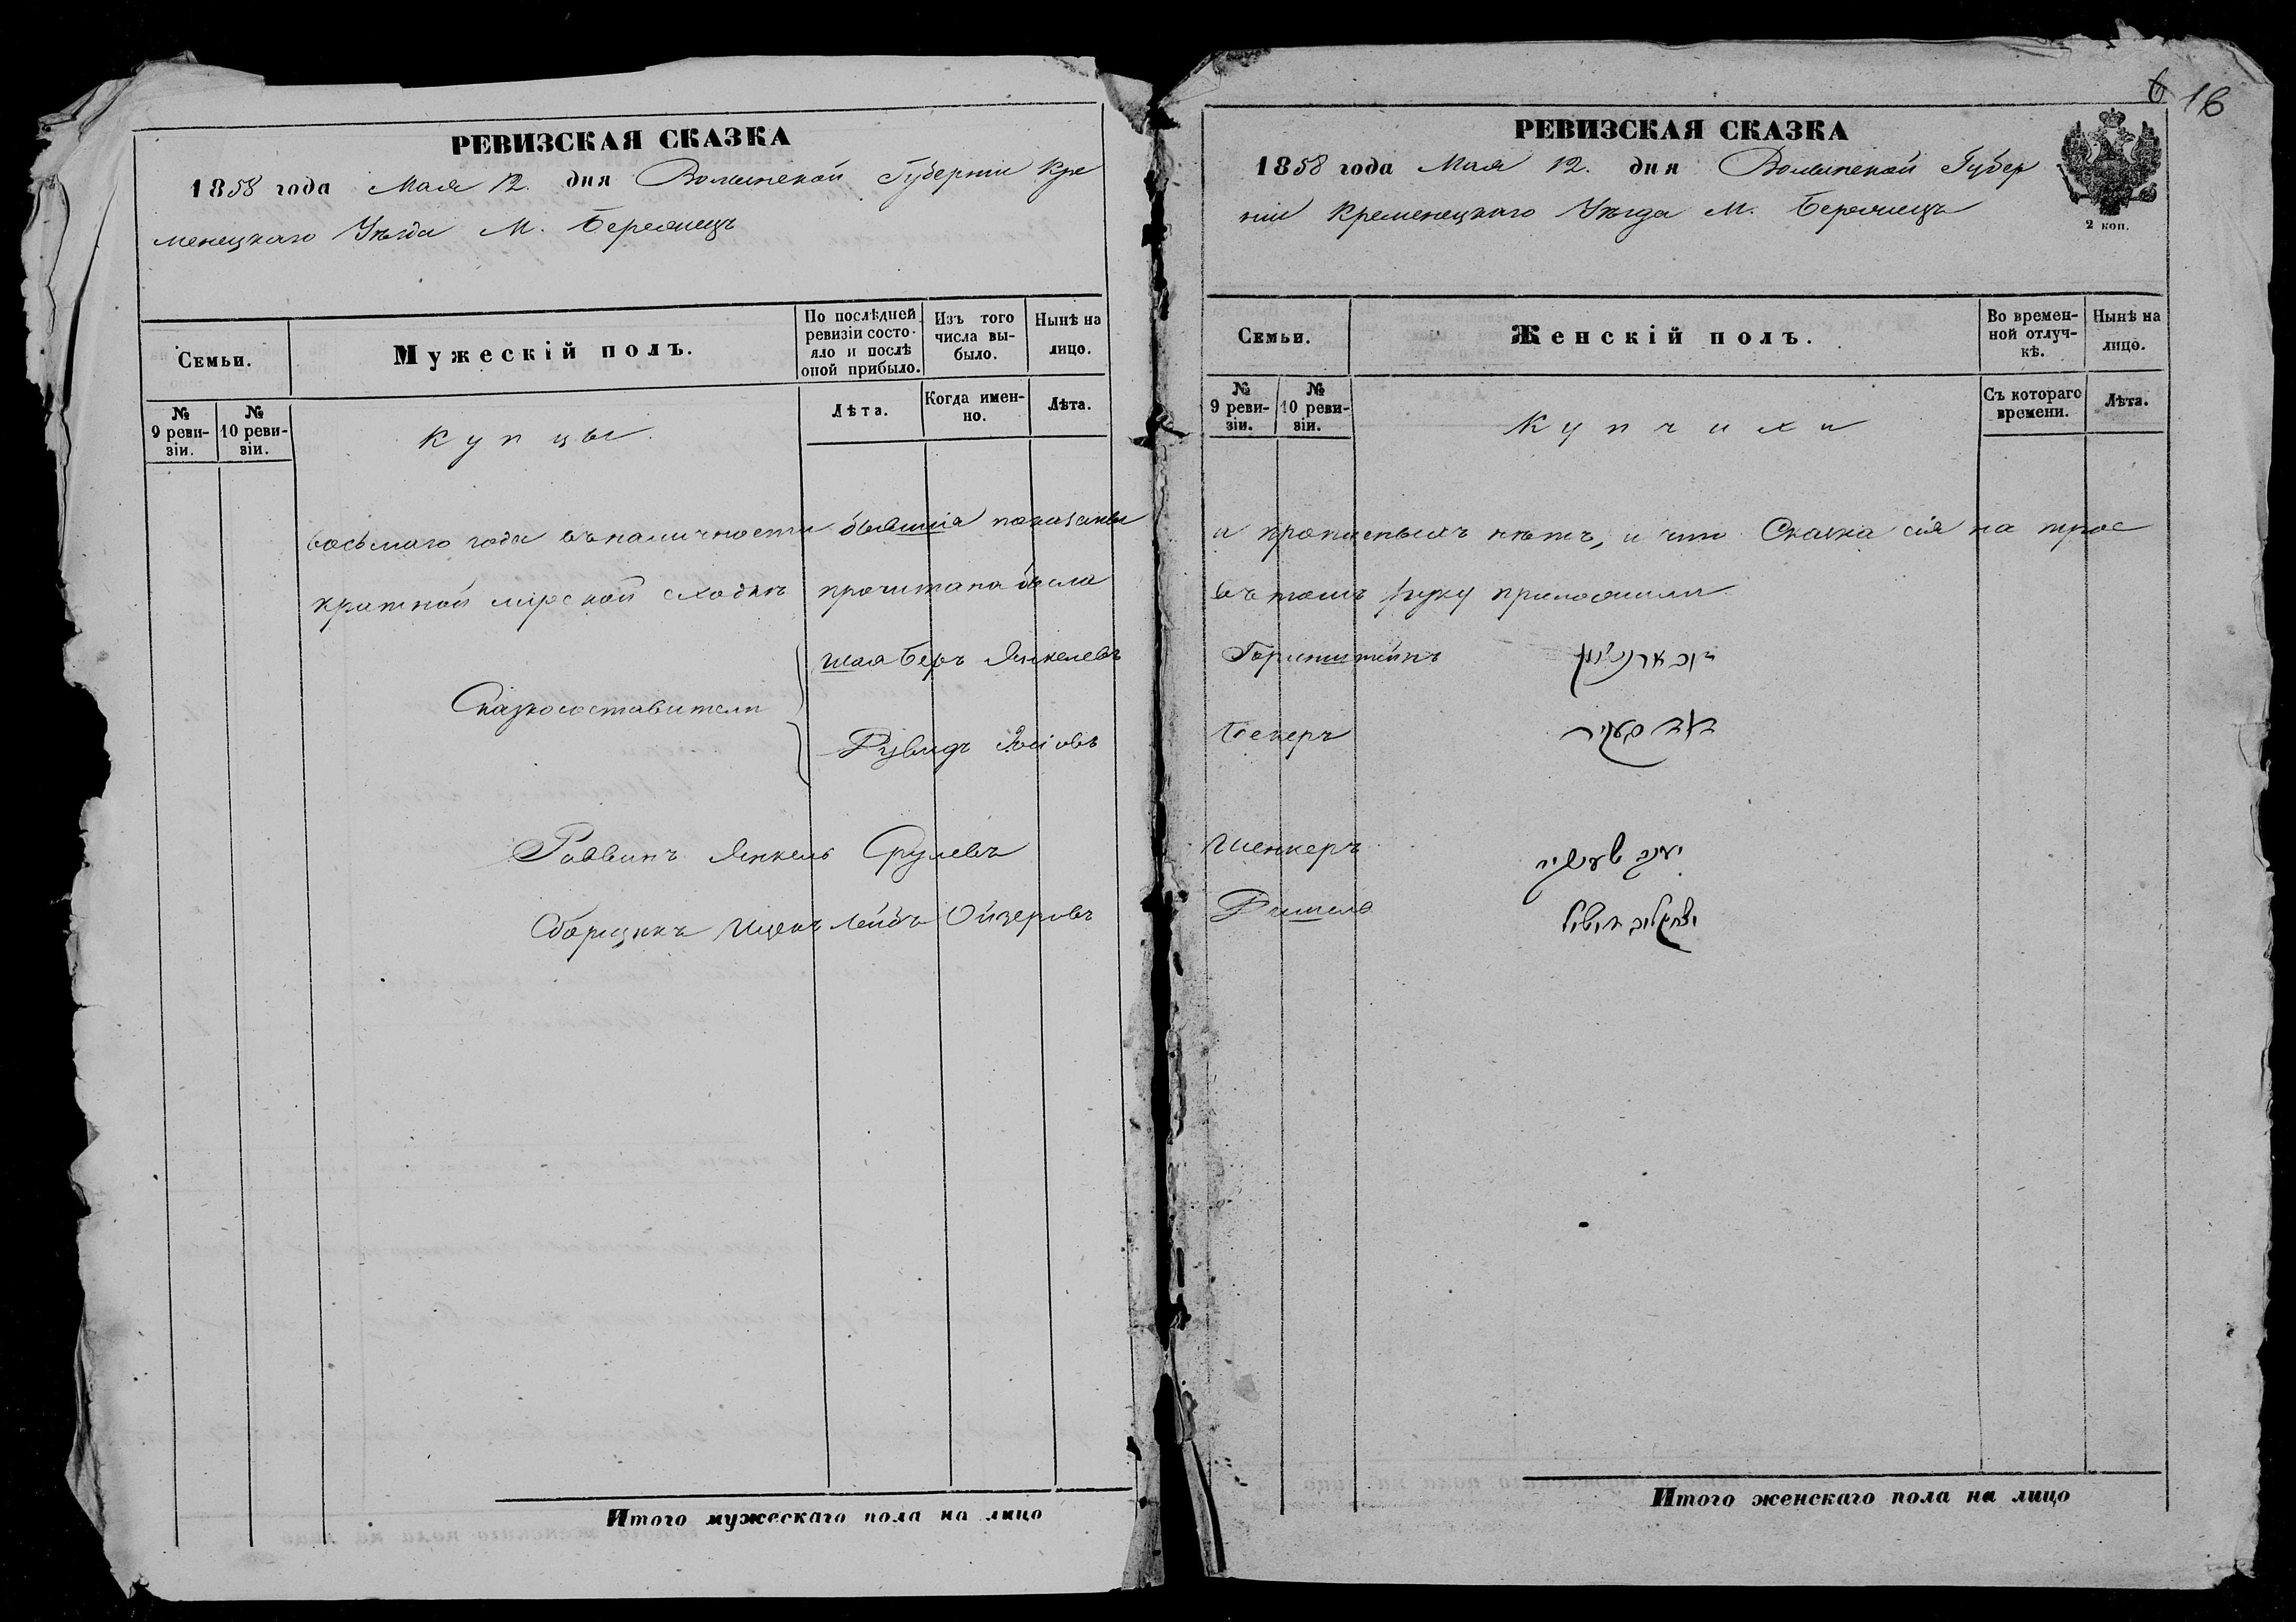 6 16
РЕВИЗСКАЯ СКАЗКА
1858 года Мая 12. дня Волынской Губерніи Кре
менецкаго Уѣзда М. Бережецъ
Семьи.
Мужескій полъ.
По послѣдней ревизіи состояло и послѣ оной прибыло.
Изъ того числа выбыло.
Нынѣ на лицо.
№ 9 ревизіи.
№ 10 ревизіи.
Купцы.
Лѣта.
Когда именно.
Лѣта.
РЕВИЗСКАЯ СКАЗКА
1858 года Мая 12. дня Волынской Губер
ніи Кременецкаго Уѣзда М. Бережецъ
2 коп.
Семьи.
Женскій полъ.
Во временной отлучкѣ.
Нынѣ на лицо.
№ 9 ревизіи.
№ 10 ревизіи.
Купчихи
Съ котораго времени.
Лѣта.
восьмаго года въ наличности бывшіе показаны и прописныхъ нѣтъ, и что Сказка сія на трое
кратной мірской сходкѣ прочитана была въ томъ руку приложили.
Сказкосоставители
Шая Беръ Янкелевъ Горинштейнъ
Рувинъ Бекеръ
Раввинъ Янкель Срулевъ Шенкеръ יענקל שענקיר
Сборщикъ Ицекъ Лейбъ Ойзеровъ Фишель
Итого мужескаго пола на лицо
Итого женскаго пола на лицо